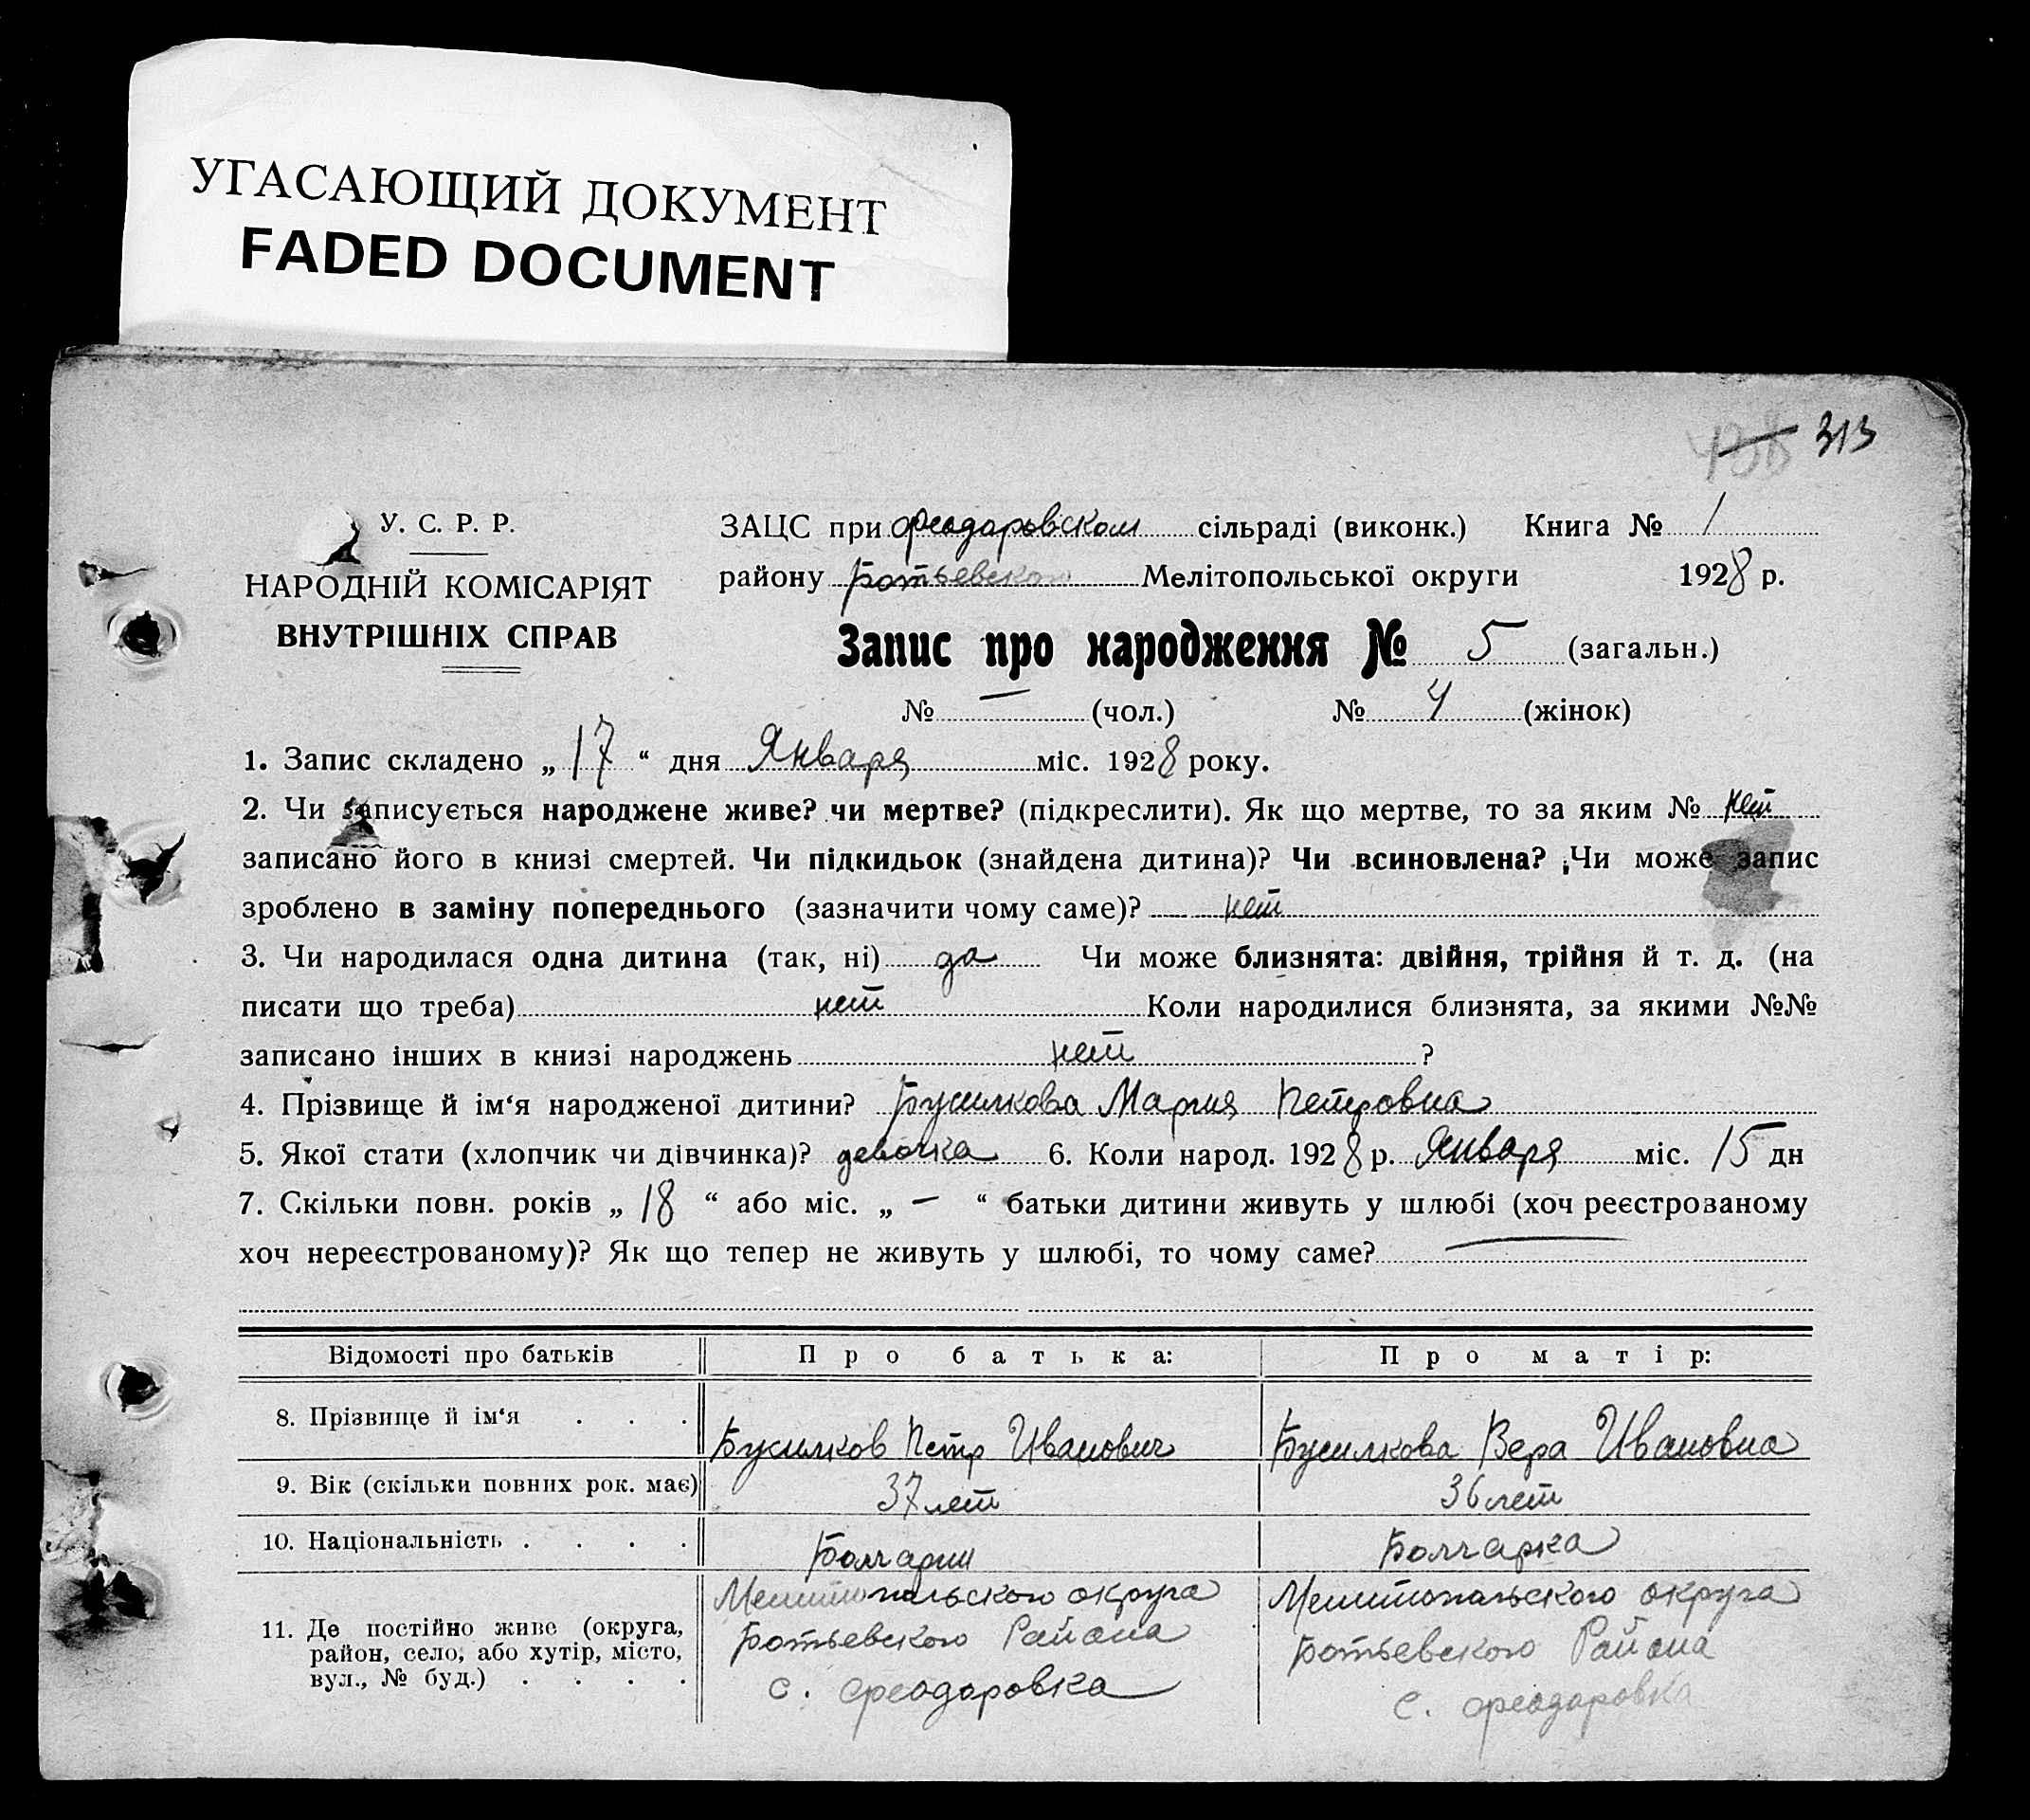 УГАСАЮЩИЙ ДОКУМЕНТ
FADED DOCUMENT
313
У. С. Р. Р.
НАРОДНІЙ КОМІСАРІЯТ
ВНУТРІШНІХ СПРАВ
ЗАЦС при Феодоровском сільраді (виконк.) Книга № 1
району Ботьевского Мелітопольської округи 1928 р.
Запис про народження № 5 (загальн.)
№ — (чол.) № 4 (жінок)
1. Запис складено „ 17 “ дня Января міс. 1928 року.
2. Чи записується народжене живе? чи мертве? (підкреслити). Як що мертве, то за яким № нет
записано його в книзі смертей. Чи підкидьок (знайдена дитина)? Чи всиновлена? Чи може запис
зроблено в заміну попереднього (зазначити чому саме)? нет
3. Чи народилася одна дитина (так, ні) да Чи може близнята: двійня, трійня й т. д. (на
писати що треба) нет Коли народилися близнята, за якими №№
записано інших в книзі народжень нет ?
4. Прізвище й ім‘я народженої дитини? Бусилкова Мария Петровна
5. Якої стати (хлопчик чи дівчинка)? девочка 6. Коли народ. 1928 р. Января міс. 15 дн
7. Скільки повн. років „ 18 “ або міс. „ — “ батьки дитини живуть у шлюбі (хоч реєстрованому
хоч нереєстрованому)? Як що тепер не живуть у шлюбі, то чому саме? —
Відомості про батьків Про батька: Про матір:
8. Прізвище й ім‘я . . . Бусилков Петр Иванович Бусилкова Вера Ивановна
9. Вік (скільки повних рок. має) 37 лет 36 лет
10. Національність . . . . Болгарин Болгарка
11. Де постійно живе (округа,
район, село, або хутір, місто,
вул., № буд.) . . . .
Мелитопольского округа
Ботьевского Района
с. Феодоровка
Мелитопольского округа
Ботьевского Района
с. Феодоровка